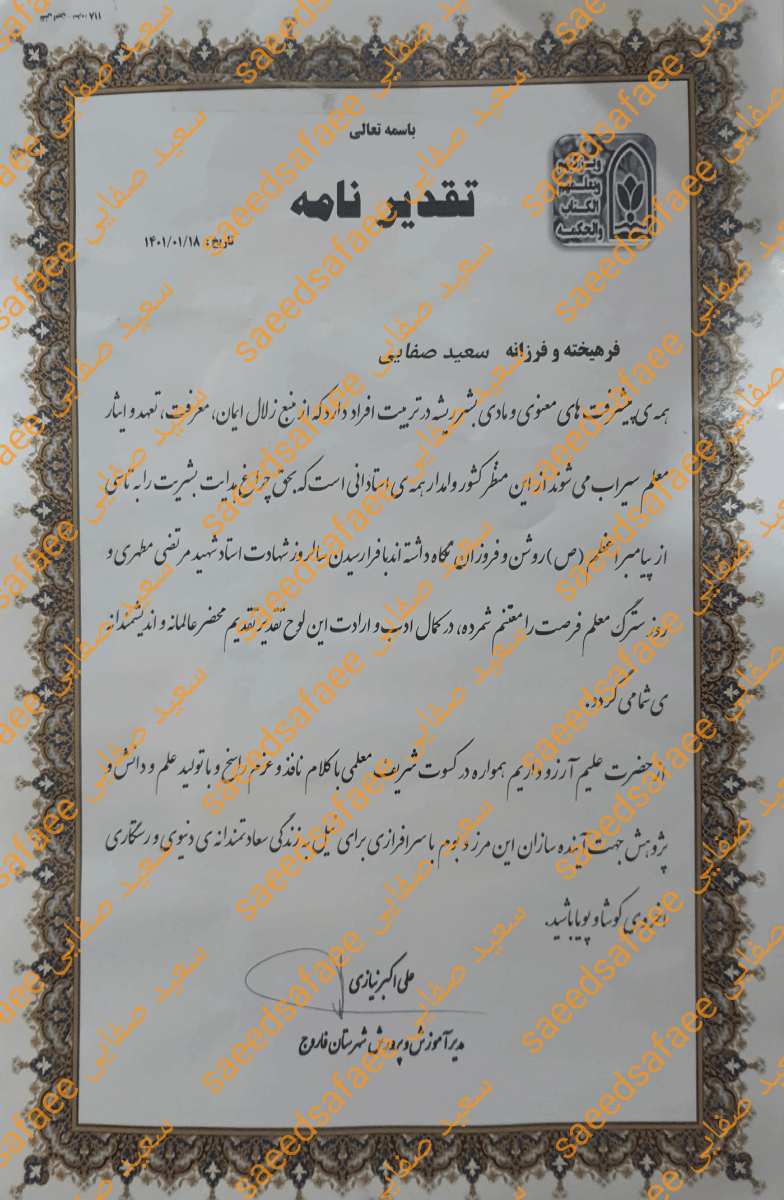 باسمه تعالی
تقدیر نامه
تاریخ: ۱۴۰۱/۰۱/۱۸
و یزکیهم
و یعلمهم
الکتاب
والحکمه
فرهیخته و فرزانه سعید صفایی
همه ی پیشرفت های معنوی و مادی بشر ریشه در تربیت افراد دارد که از منبع زلال ایمان، معرفت، تعهد و ایثار
معلم سیراب می شوند از این منظر کشور وامدار همه ی استادانی است که بحق چراغ هدایت بشریت را به تاسی
از پیامبر اعظم (ص) روشن و فروزان نگاه داشته اند با فرا رسیدن سالروز شهادت استاد شهید مرتضی مطهری و
روز سترگ معلم فرصت را مغتنم شمرده، در کمال ادب و ارادت این لوح تقدیر تقدیم محضر عالمانه و اندیشمندانه
ی شما می گردد.
از حضرت علیم آرزو داریم همواره در کسوت شریف معلمی با کلام نافذ و عزم راسخ و با تولید علم و دانش و
پژوهش جهت آینده سازان این مرز و بوم با سرافرازی برای نیل به زندگی سعادتمندانه ی دنیوی و رستگاری
اخروی کوشا و پویا باشید.
علی اکبر نیازی
مدیر آموزش و پرورش شهرستان فاروج
saeedsafaee سعید صفایی